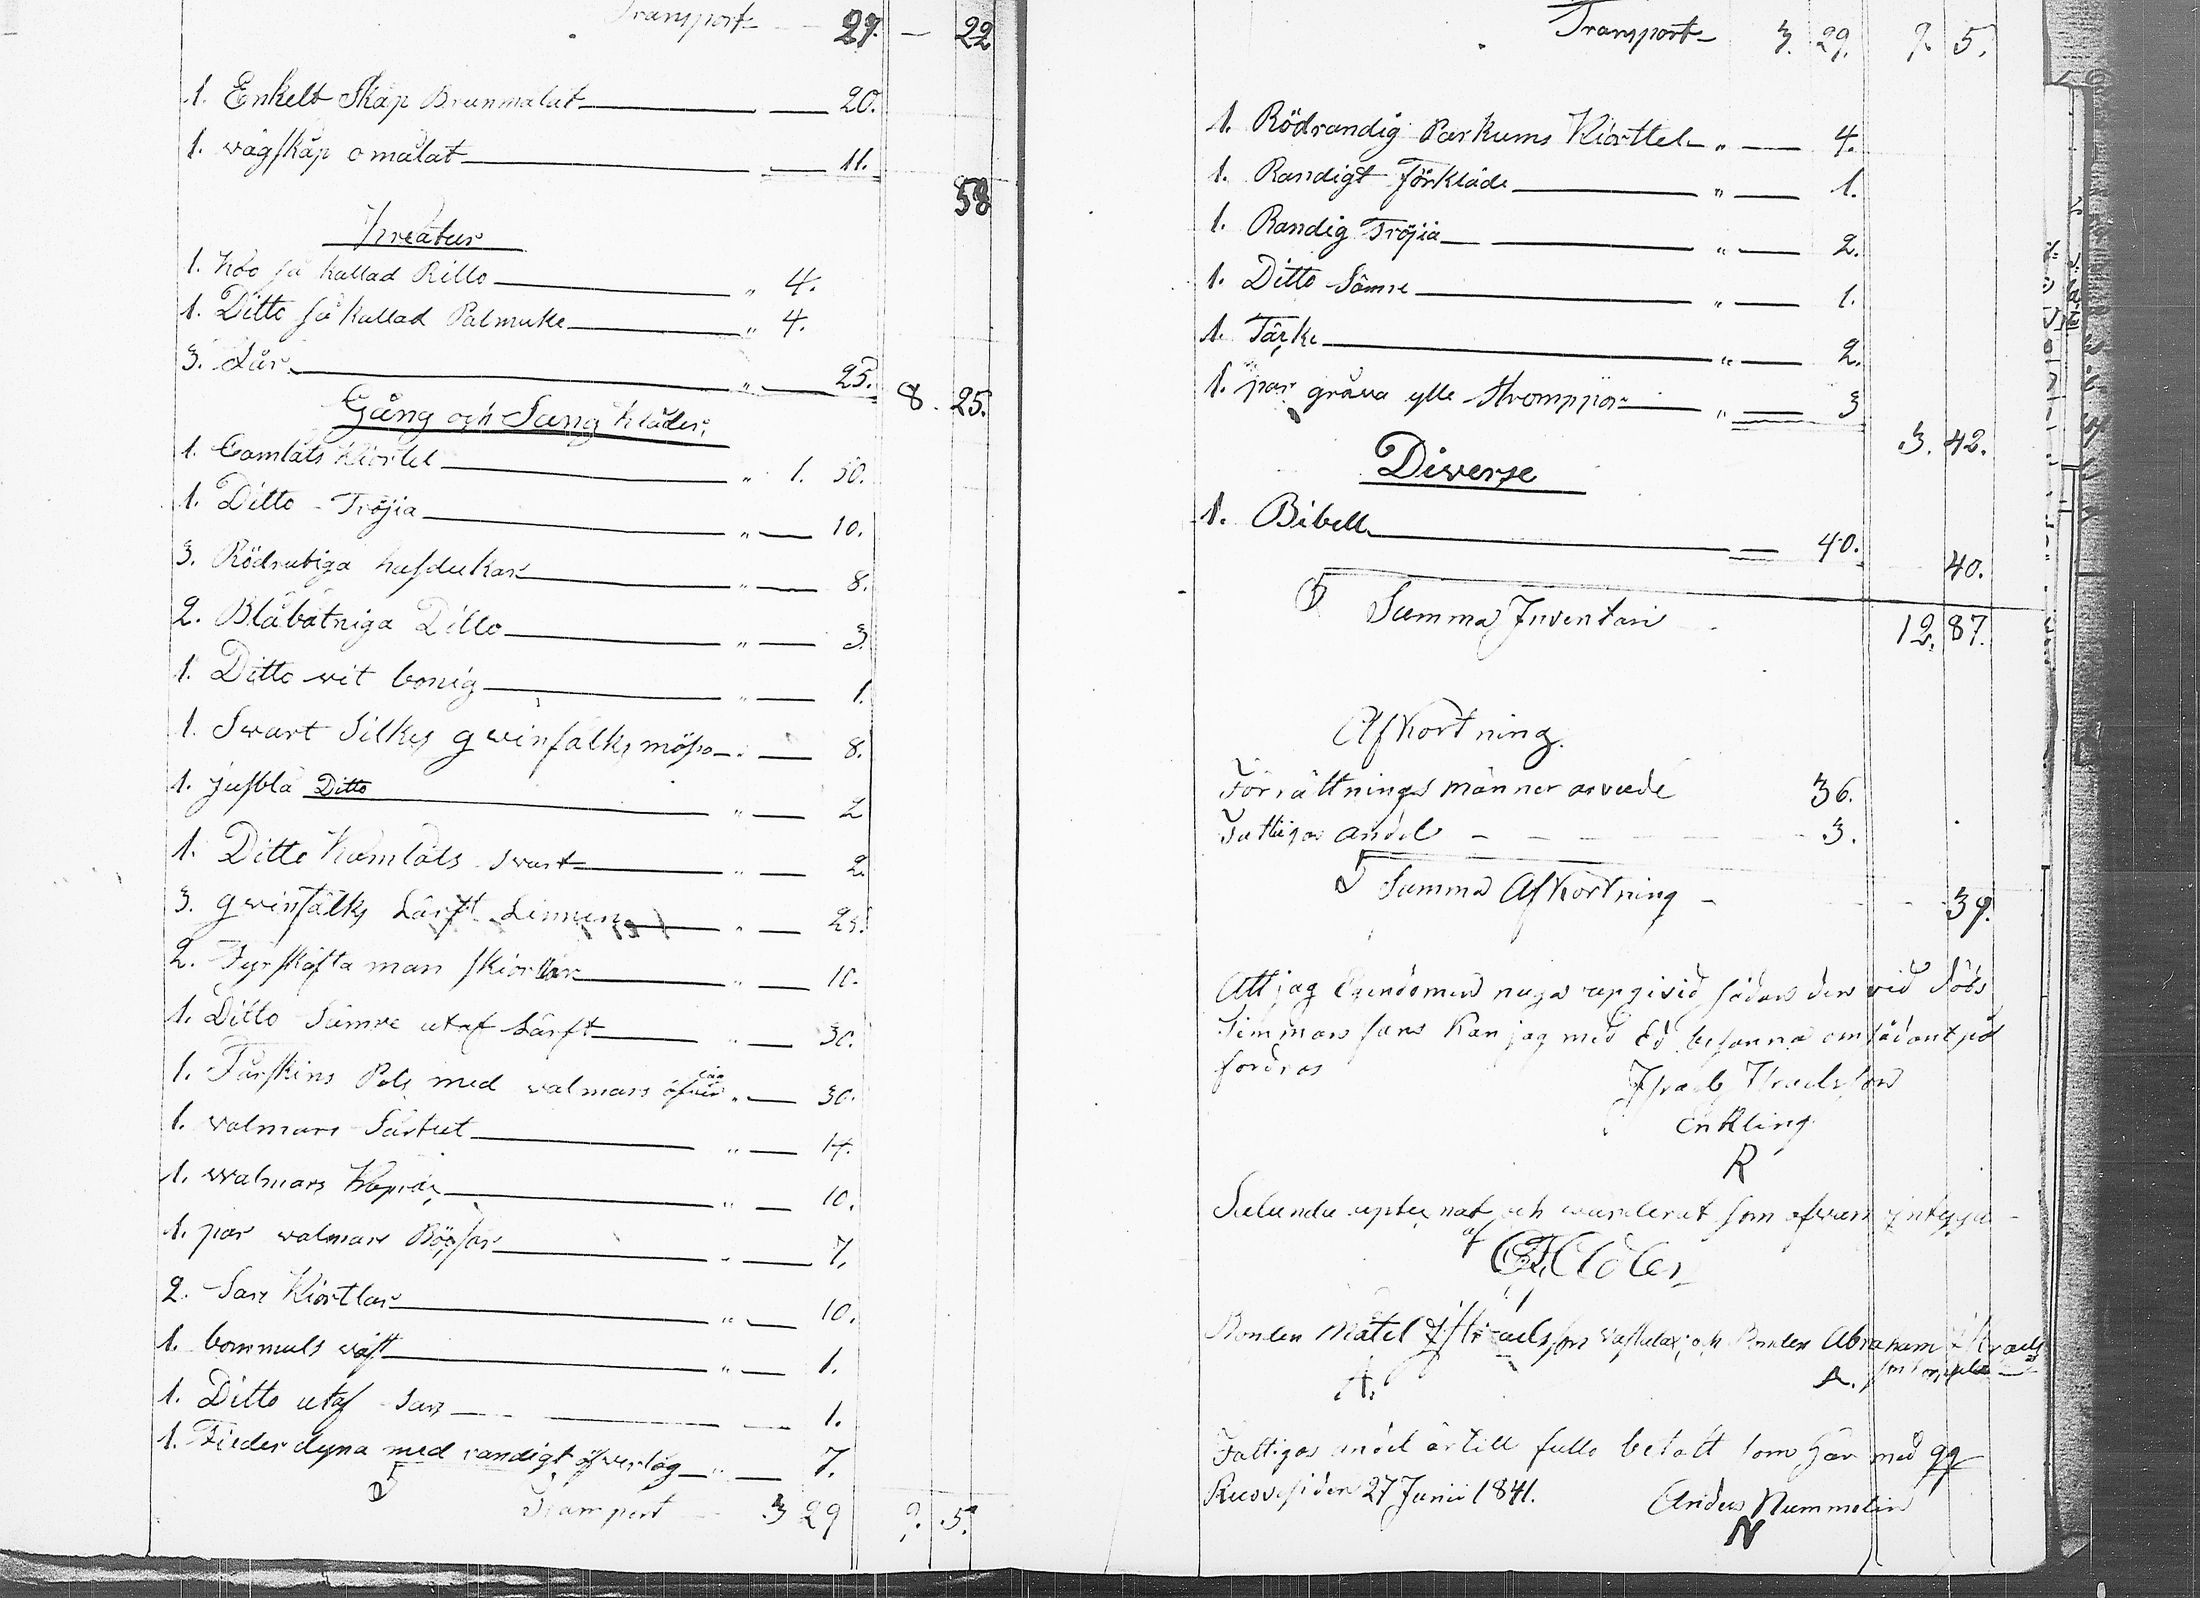 Transport 27. — 22
1. Enkelt Skåp Brunmålat 20.
1. vägskåp omålat 11.
58
Kreatur
1. Koo så kallad Rillo " 4.
1. Ditto så kallad Palmuke " 4.
3. Får " 25.
8. 25.
Gång och Säng Kläder,
1. Camlåts Kiortel " 1. 30.
1. Ditto Tröjia " 10.
3. Rödrutiga husdukar " 8.
2. Blåbåtniga Ditto " 3.
1. Ditto vit bonig " 1.
1. Swart Silkes qwinfålks mösa " 8.
1. jusblå Ditto " 2
1. Ditto Kamlåts swart " 2.
3. qwinfålks Lärft Linnen " 25.
2. Fyrskäfta man skiortor " 10.
1. Ditto Sämre utaf Lärft " 30.
1. Fårskins Pels med valmars " 30.
1. valmars Särtut " 14.
1. walmars " 10.
1. par valmars Böxsor " 7.
2. Sarx Kiortlar " 10.
1. bommuls väst " 1.
1. Ditto utaf Sarx 1.
1. Fieder dyna med randigt öfwerlag " 7.
Transport 3 29 9. 5.
Transport 3. 29. 9. 5.
1. Rödrandig Parkums Kiorttel " 4.
1. Randigt Förkläde " 1.
1. Randig Tröjia " 2.
1. Ditto Sämre " 1.
1. Tärke " 2.
1. par gråva ylle strompjor " 3
3. 42.
Diverse
1. Bibell 40.
40.
Summa Inventari 12. 87.
Afkortning.
Förrättnings männer arvude 36.
Fattigas andel 3.
Summa Afkortning 39.
Att jag Egendomen noga upgivid sådan den vid döds
timman fans kan jag med Ed besanna om sådant på
fordras
Israel Israelsson
Enkling
R
Sålunda uptecknat och wärderat som ofwan intygar
af
Bonden Matel Israelsson och Bonden Abraham Israels
A. A. son
Fattigas andel är till fullo betalt som här med qq
den 27 Junii 1841. Anders Nummelin
N